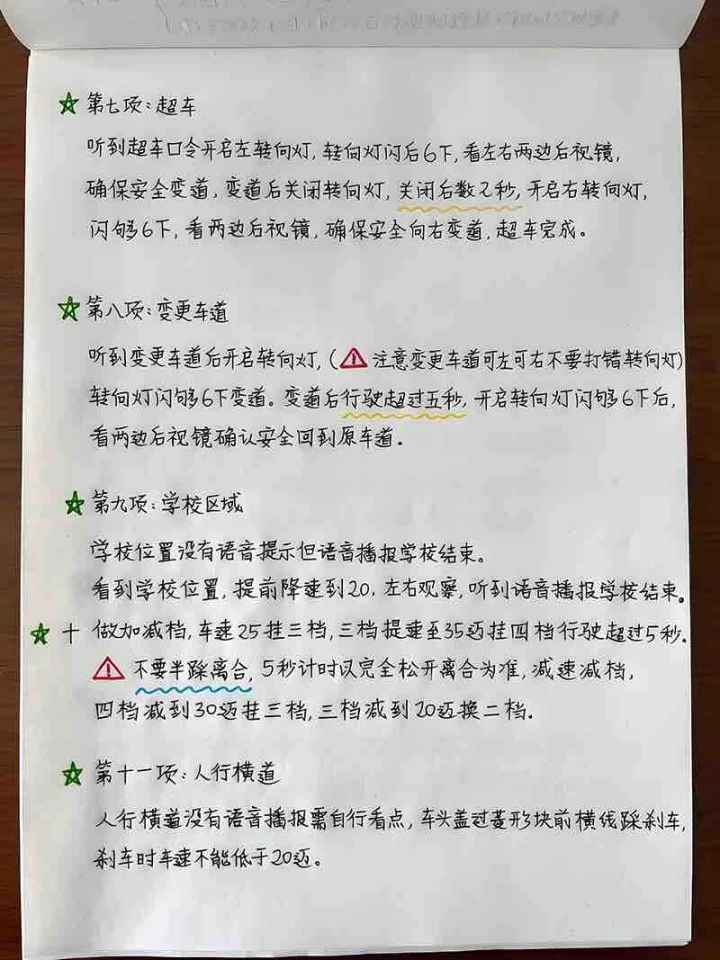 第七项:超车
听到超车口令开启左转向灯,转向灯闪后6下,看左右两边后视镜,
确保安全变道,变道后关闭转向灯,关闭后数2秒,开启右转向灯,
闪够6下,看两边后视镜,确保安全向右变道,超车完成。
第八项:变更车道
听到变更车道后开启转向灯,(注意变更车道可左可右不要打错转向灯)
转向灯闪够6下变道。变道后行驶超过五秒,开启转向灯闪够6下后,
看两边后视镜确认安全回到原车道。
第九项:学校区域
学校位置没有语音提示但语音播报学校结束。
看到学校位置,提前降速到20,左右观察,听到语音播报学校结束。
十 做加减档,车速25挂三档,三档提速至35迈挂四档行驶超过5秒。
不要半踩离合,5秒计时以完全松开离合为准,减速减档,
四档减到30迈挂三档,三档减到20迈换二档.
第十一项:人行横道
人行横道没有语音播报需自行看点,车头盖过菱形块前横线踩刹车,
刹车时车速不能低于20迈。